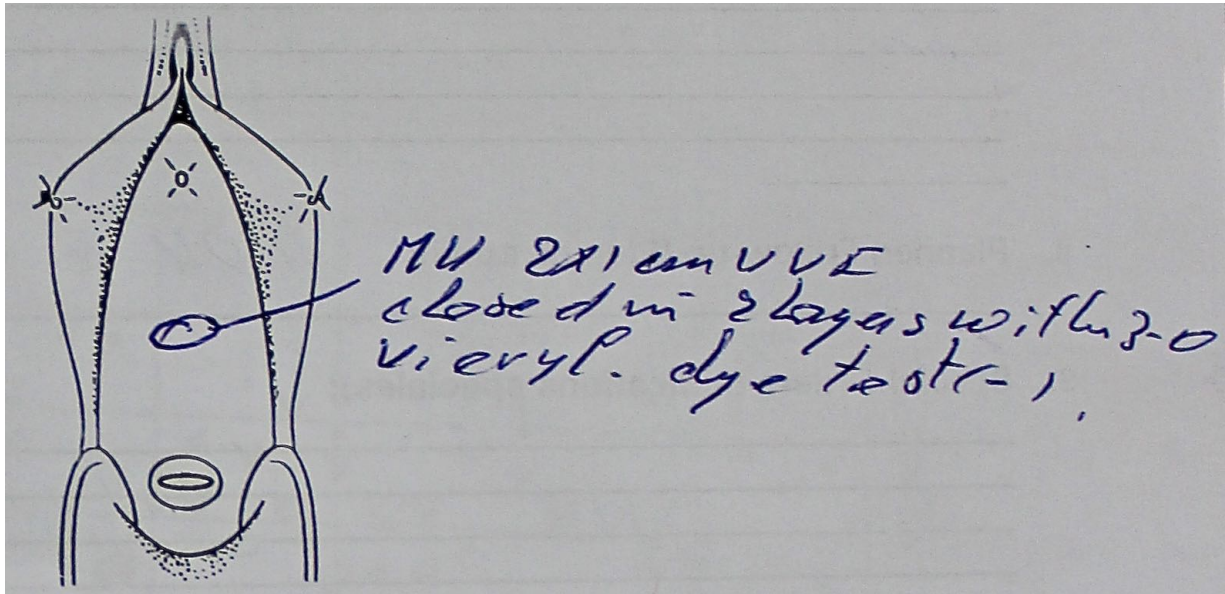 MV 2x1 cm VVF
closed in 2 layers with 3-0
vicryl. dye test (-).